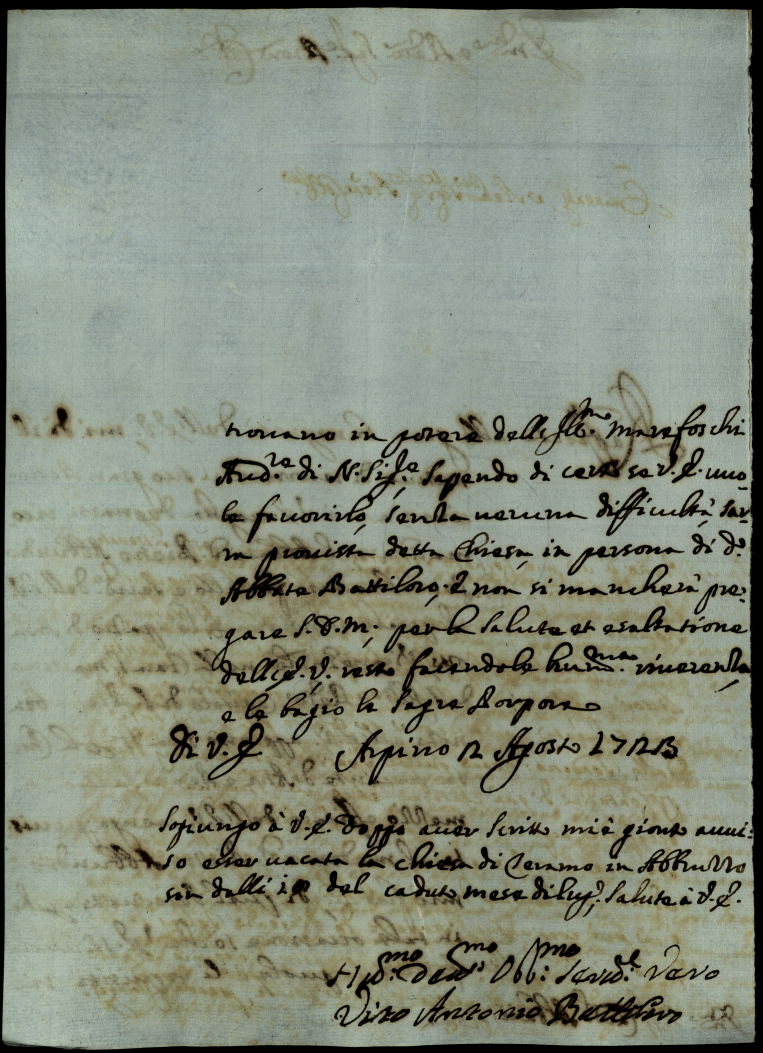 trovano in potere dell'Ill.mo Marefoschi
Aud.re di N. Sig.re sapendo di certo se V. E. vuo-
le favorirlo, senza veruna difficultà, sar-
ra provista detta Chiesa, in persona di d.o
Abbate Battiloro, E non si mancherà pre-
gare S. D. M., per la salute et esaltatione
dell'E. V. resto facendole hum.ma riverenza
e le bagio la Sagra Porpora
Di V. E. Arpino 12 Agosto 1723
Sogiungo à V. E. doppo aver scritto mi è gionto avvi-
so esser vacata la chiesa di Teramo in Abbruzzo
sin dalli del caduto mese di lug.o, salute à V. E.
H.mo dev.mo Obl.mo Servid.e Vero
Vito Antonio Battiloro